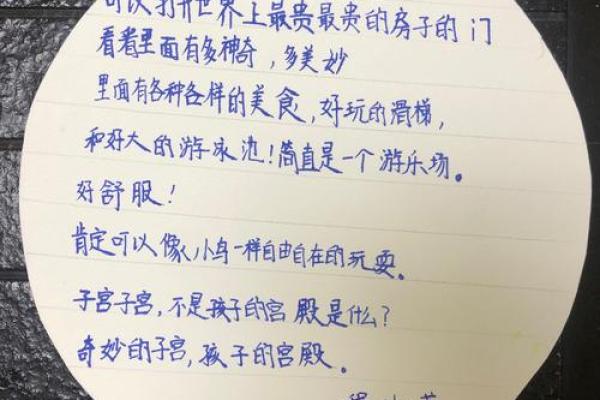 可以打开世界上最贵最贵的房子的门
看看里面有多神奇,多美妙
里面有各种各样的美食,好玩的滑梯,
和好大的游泳池!简直是一个游乐场。
好舒服!
肯定可以像小鸟一样自由自在的玩耍。
子宫子宫,不是孩子的宫殿是什么?
奇妙的子宫,孩子的宫殿。